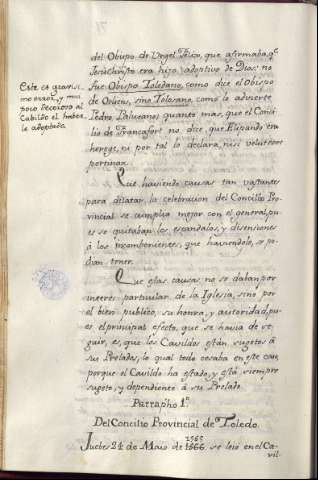 del Obispo de Urgel Felix, que afirmaba, q.e
Jesu Christo era hijo adoptivo de Dios: no
fue Obispo Toledano, como dice el Obispo
de Orleans, sino Tolosano, como lo advierte
Pedro Paluceano: quanto mas, que el Conci-
lio de Francafort no dice, que Elipando era
herege, ni por tal lo declara, nisi voluissent
pertinax.
Este es gravisi-
mo error, y mui
poco decoroso al
Cabildo el haber-
le adoptado
Que haviendo causas tan vastantes
para dilatar la celebracion del Concilio Pro-
vincial se cumplia mejor con el general, pu-
es se quitaban los escandalos, y disensiones
á los inconbenientes, que haciendolo, se po-
dian temer.
Que estas causas no se daban por
interes particular de la Iglesia, sino por
el bien publico, su honra, y autoridad, pu-
es el principal efecto, que se havia de se-
guir, es, que los Cavildos están sugetos á
sus Prelados, lo qual todo cesaba en este caso,
porque el Cavildo ha estado, y está siempre
sugeto, y dependiente á su Prelado.
Parrapho 1.º
Del Concilio Provincial de Toledo
1565
Juebes 24 de Maio de 1566. se leió en el Ca-
vil-